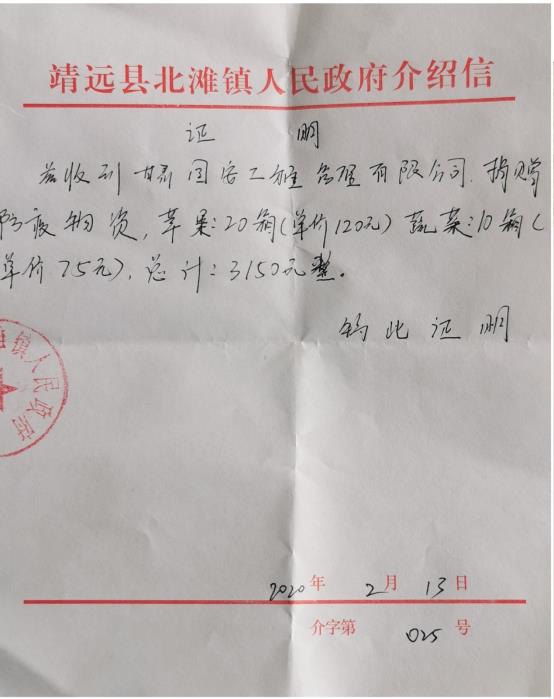 靖远县北滩镇人民政府介绍信
证 明
兹收到甘肃固安工程管理有限公司.捐赠
防疫物资,苹果:20箱(单价120元)蔬菜:10箱(
单价75元),总计:3150元整。
特此证明
镇人民政府
2020年 2月 13日
介字第 025 号